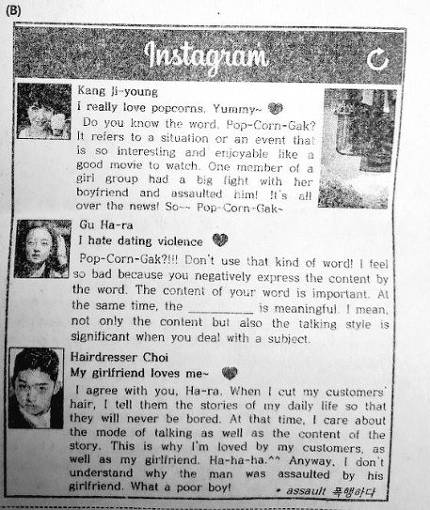 (B)
Instagram
Kang Ji-young
I really love popcorns. Yummy~
Do you know the word, Pop-Corn-Gak?
It refers to a situation or an event that
is so interesting and enjoyable like a
good movie to watch. One member of a
girl group had a big fight with her
boyfriend and assaulted him! It's all
over the news! So~~ Pop-Corn-Gak~
Gu Ha-ra
I hate dating violence
Pop-Corn-Gak?!!! Don't use that kind of word! I feel
so bad because you negatively express the content by
the word. The content of your word is important. At
the same time, the __________ is meaningful. I mean,
not only the content but also the talking style is
significant when you deal with a subject.
Hairdresser Choi
My girlfriend loves me~
I agree with you, Ha-ra. When I cut my customers'
hair, I tell them the stories of my daily life so that
they will never be bored. At that time, I care about
the mode of talking as well as the content of the
story. This is why I'm loved by my customers, as
well as my girlfriend. Ha-ha-ha.^^ Anyway, I don't
understand why the man was assaulted by his
girlfriend. What a poor boy!
* assault 폭행하다